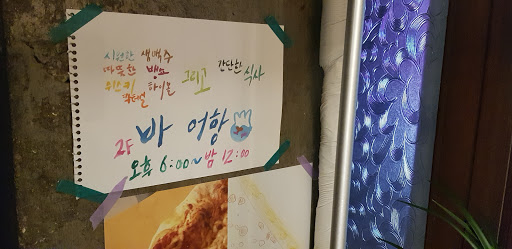 시원한 생맥주
따뜻한 뱅쇼 그리고 간단한 식사
위스키 하이볼
칵테일
2F 바 어항
오후 6:00~밤 12:00